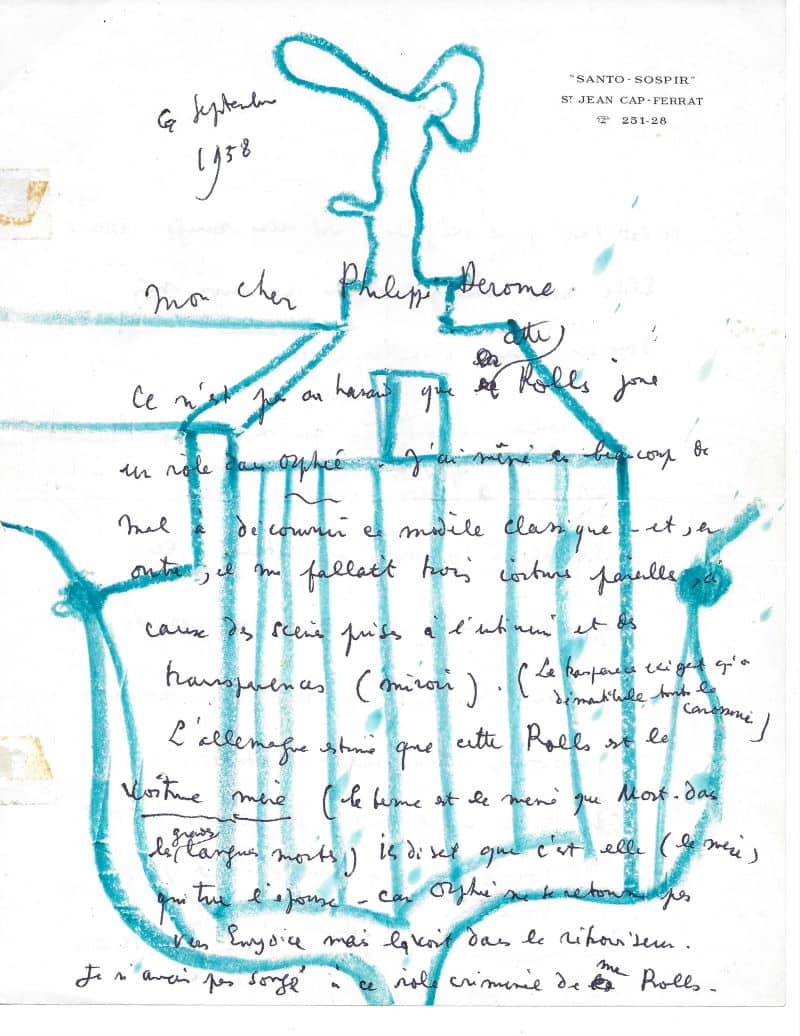 "SANTO-SOSPIR"
ST JEAN CAP-FERRAT
☏ 251-28
6 Septembre
1958
Mon cher Philippe Derome
Ce n'est pas au hasard que cette Rolls joue
un rôle dans Orphée. J'ai même eu beaucoup de
mal à découvrir ce modèle classique - et, en
outre, il me fallait trois voitures pareilles, à
cause des scènes prises à l'intérieur et des
transparences (miroir). (La transparence exigeait qu'on
démantibule toute la
carrosserie)
L'allemagne estime que cette Rolls est la
Voiture mère (le terme est le même que Mort - dans
les grandes langues mortes) ils disent que c'est elle (la mère)
qui tue l'épouse - car Orphée ne se retourne pas
vers Eurydice mais la voit dans le rétroviseur.
Je n'avais pas songé à ce rôle criminel de ma Rolls.